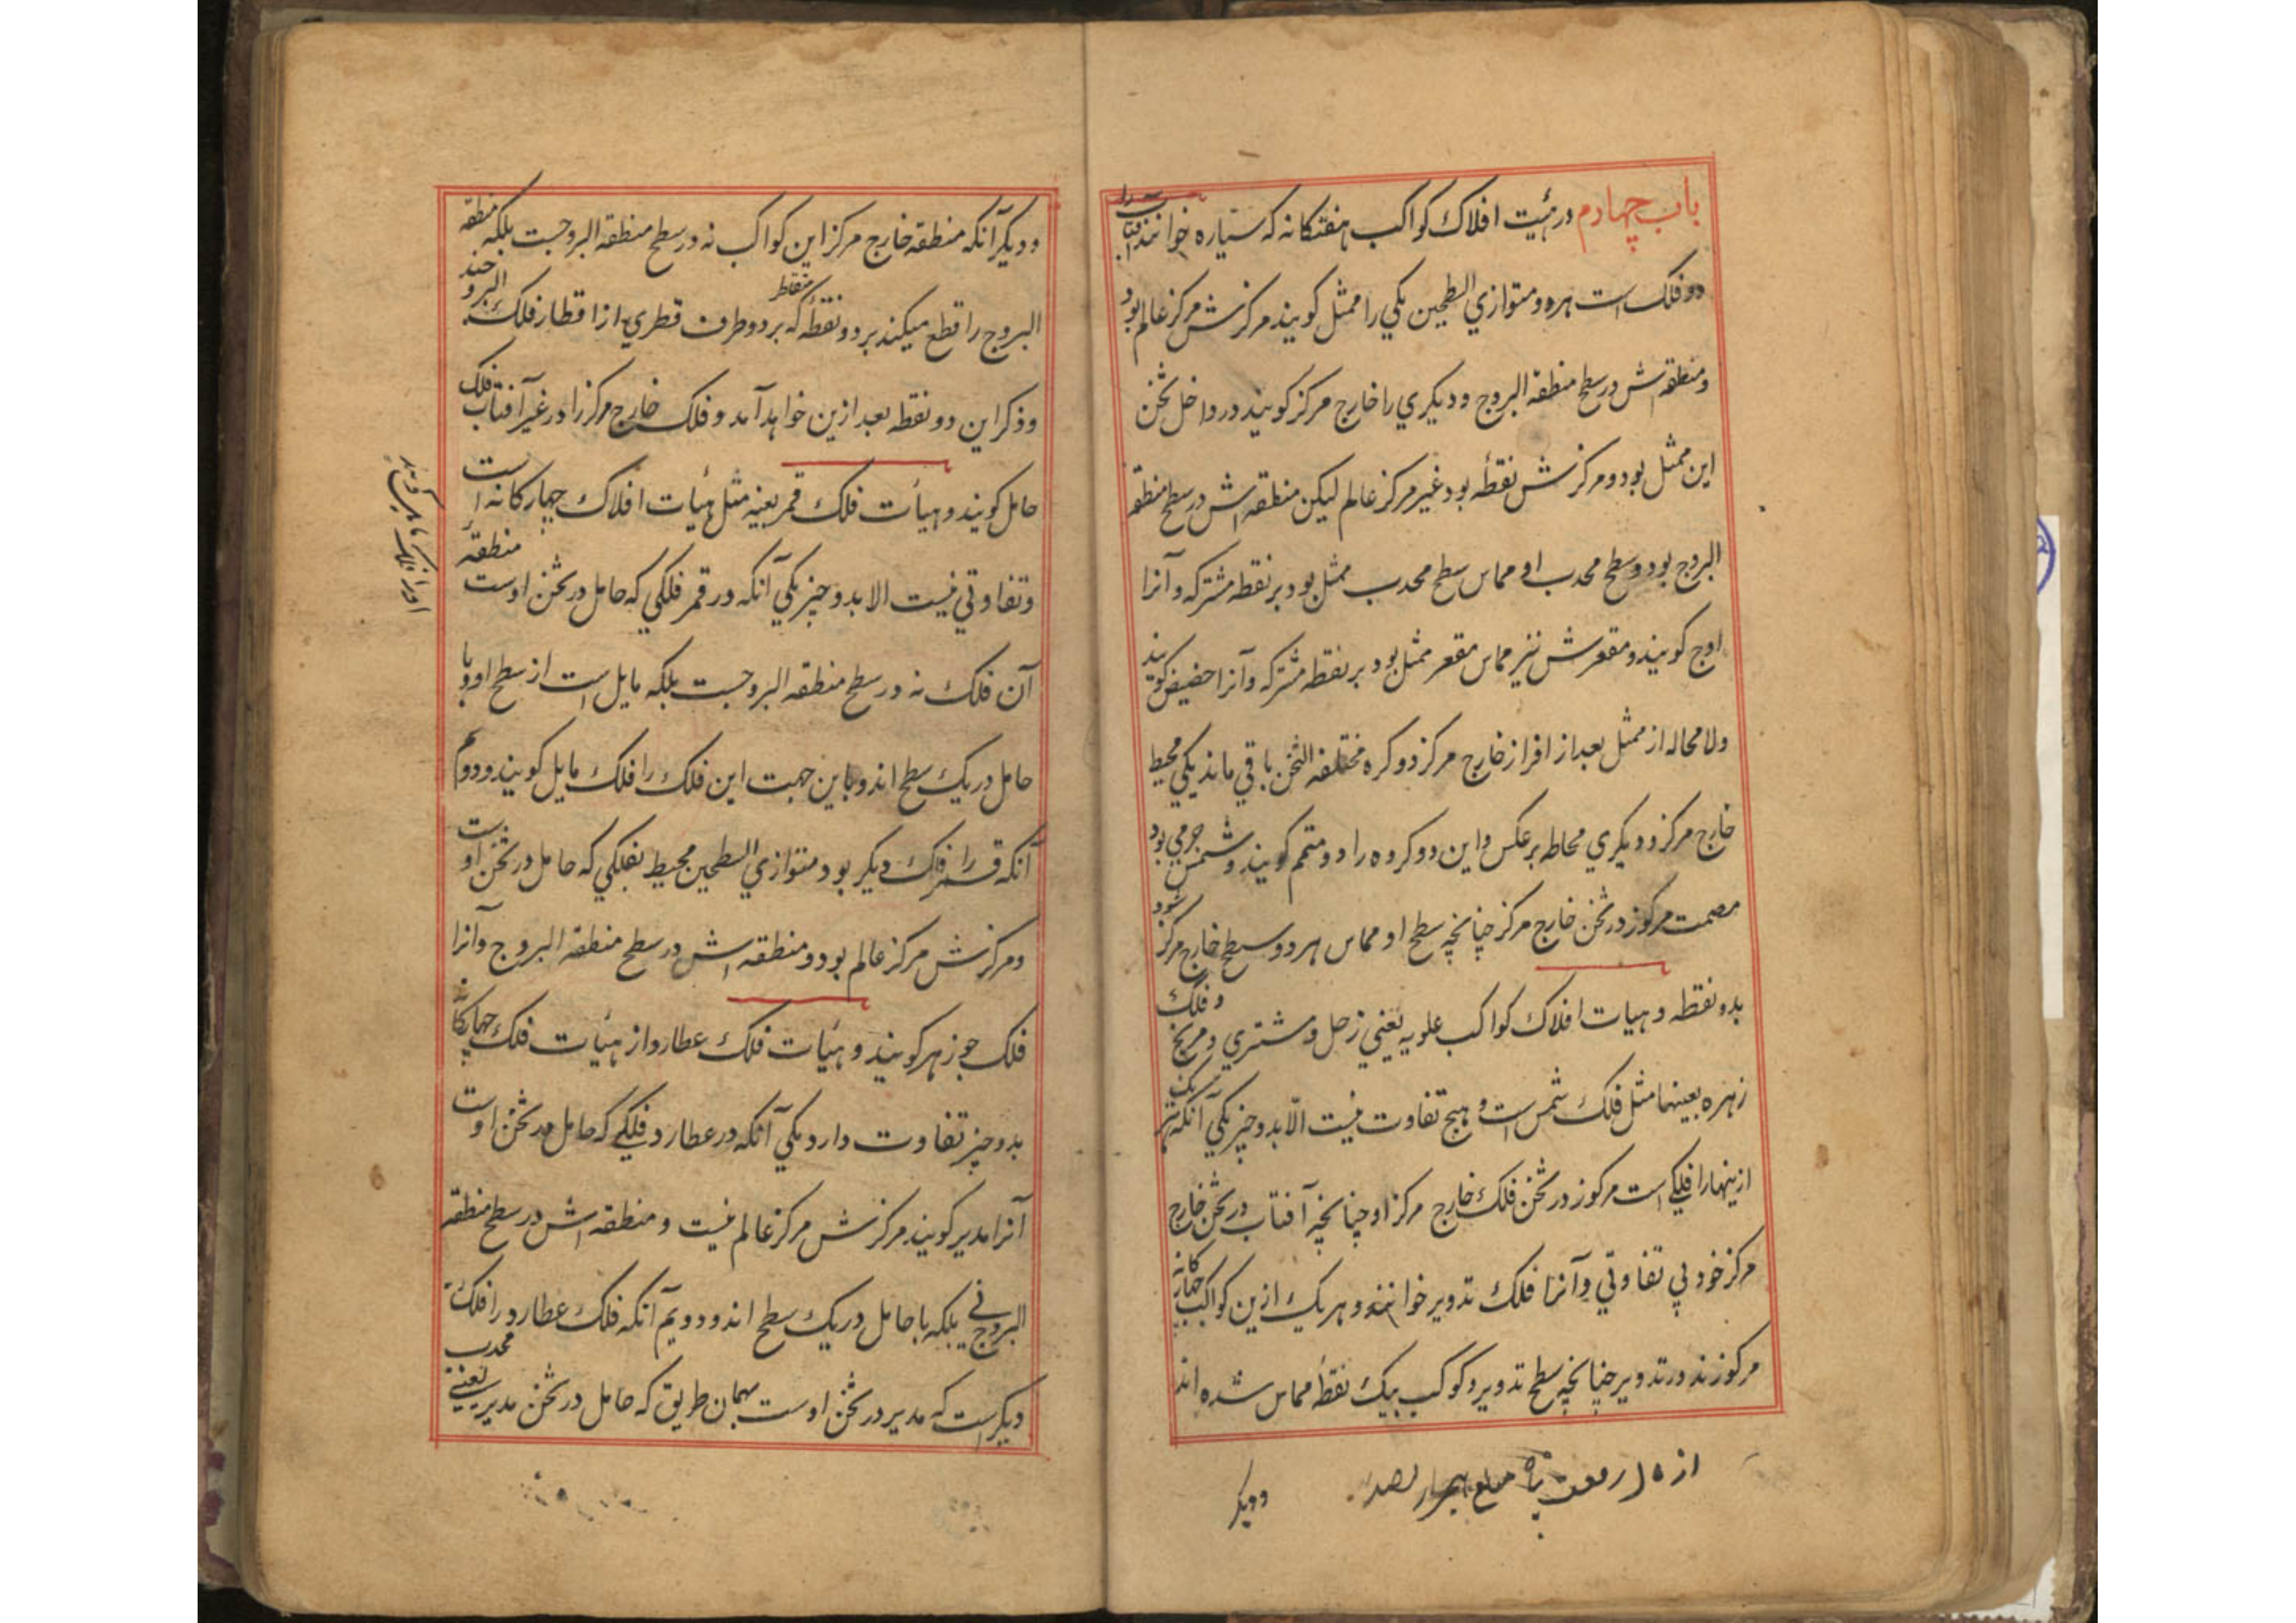 باب چهارم در هیئت افلاک کواکب هفتکانه که سیاره خوانند آفتاب را
دو فلک است هر دو متوازي السطحین یکي را ممثل کویند مرکزش مرکز عالم بود
و منطقه اش در سطح منطقه البروج و دیکري را خارج مرکز کویند در داخل ثخن
این ممثل بود و مرکزش نقطهٔ بود غیر مرکز عالم لیکن منطقه اش در سطح منطقه
البروج بود و سطح محدب او مماس سطح محدب ممثل بود بر نقطه مشترکه و آنرا
اوج کویند و مقعرش نیز مماس مقعر ممثل بود بر نقطه مشترکه و آنرا حضیض کویند
ولا محاله از ممثل بعد از افراز خارج مرکز دو کره مختلفه الثخن باقي ماند یکي محیط
خارج مرکز و دیکري محاطه بر عکس و این دو کروه را دو متمم کویند و شمس جرمي بود
مصمت مرکوز در ثخن خارج مرکز چنانچه سطح او مماس هر دو سطح خارج مرکز شود
بدو نقطه و هیات افلاک کواکب علویه یعني زحل و مشتري و مریخ و فلک
زهره بعینها مثل فلک شمس است و هیچ تفاوت نیست الّا بدو چیز یکي آنکه هر یک
ازینهارا فلکي است مرکوز در ثخن فلک خارج مرکز او چنانچه آفتاب در ثخن خارج
مرکز خود بي تفاوتي و آنرا فلک تدویر خوانند و هر یک ازین کواکب چهار کانه
مرکوزند در تدویر چنانچه سطح تدویر و کوکب بیک نقطه مماس شده اند
و دیکر
و دیکر آنکه منطقه خارج مرکز این کواکب نه در سطح منطقه البروجست بلکه منطقه
البروج را قطع میکند بر دو نقطهٔ متقاطر که بر دو طرف قطري از اقطار فلک البروجند
و ذکر این دو نقطه بعد ازین خواهد آمد و فلک خارج مرکز را در غیر آفتاب فلک
حامل کویند و هیأت فلک قمر بعینه مثل هیأت افلاک چهارکانه است
و تفاوتي نیست الا بدو چیز یکي آنکه در قمر فلکي که حامل در ثخن اوست منطقهٔ
آن فلک نه در سطح منطقه البروجست بلکه مایل است از سطح او و با
حامل در یک سطح اند و باین جهت این فلک را فلک مایل کویند و دوم
آنکه قمر را فلک دیکر بود متوازي السطحین محیط بفلکي که حامل در ثخن اوست
و مرکزش مرکز عالم بود و منطقه اش در سطح منطقه البروج و آنرا
فلک جوزهر کویند و هیأت فلک عطارد از هیأت فلک چهارکانه
بدو چیز تفاوت دارد یکي آنکه در عطارد فلکي که حامل در ثخن اوست
آنرا مدیر کویند مرکزش مرکز عالم نیست و منطقه اش در سطح منطقه
البروج ني بلکه با حامل در یک سطح اند و دویم آنکه فلک عطارد را فلک
دیکرست که مدیر در ثخن اوست بهمان طریق که حامل در ثخن مدیر یعني محدب